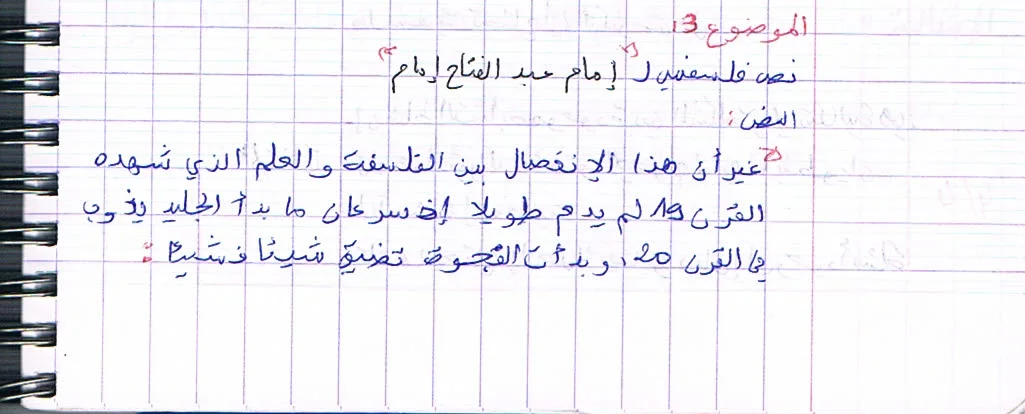 الموضوع 3:
نص فلسفي لـ "إمام عبد الفتاح إمام"
النص:
"غير أن هذا الإنفصال بين الفلسفة والعلم الذي شهده
القرن 19 لم يدم طويلا إذ سرعان ما بدأ الجليد يذوب
في القرن 20، وبدأت الفجوة تضيق شيئا فشيئا :